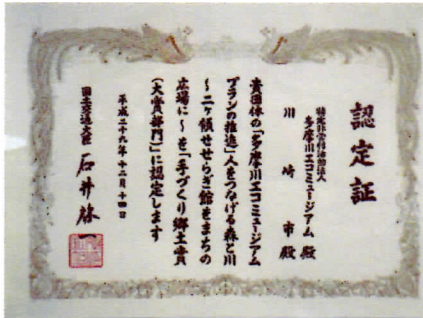 認定証
特定非営利活動法人
多摩川エコミュージアム 殿
川崎市 殿
貴団体の「多摩川エコミュージアム
プランの推進」人をつなげる森と川
~二ヶ領せせらぎ館をまちの
広場に~を「手づくり郷土賞
(大賞部門)」に認定します
平成二十九年十二月十四日
国土交通大臣 石井啓一